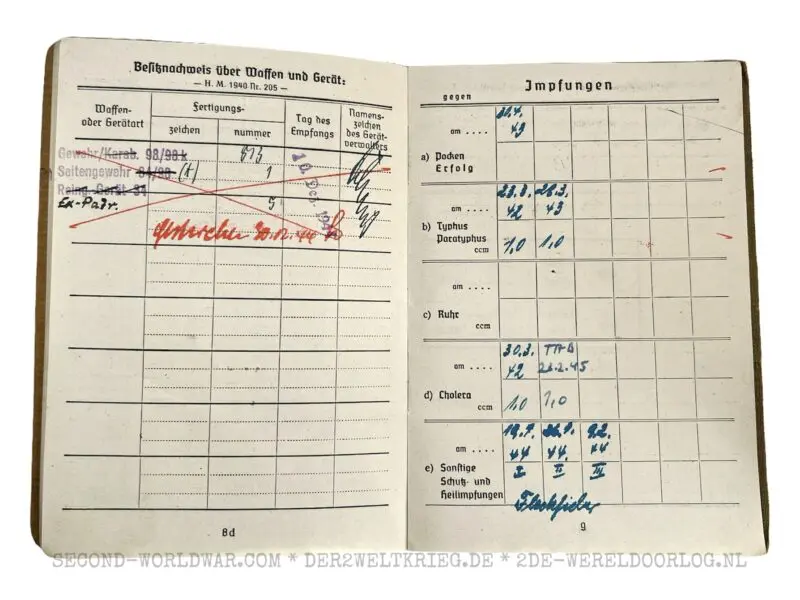 Besitznachweis über Waffen und Gerät:
— H. M. 1940 Nr. 205 —
Waffen- oder Gerätart
Fertigungs-
zeichen
nummer
Tag des Empfangs
Namens-zeichen des Gerät-verwalters
Gewehr/Karab. 98/98 k
Seitengewehr 84/98 (K) 1
Reing. Gerät 34
Ex-Patr. 5
20.12.44
8d
Impfungen
gegen
am ....
30.4.
43
a) Pocken
Erfolg
am ....
23.3. 28.3.
42 43
b) Typhus
Paratyphus
ccm
1,0 1,0
am ....
c) Ruhr
ccm
am ....
30.3. TAB
42 23.2.45
d) Cholera
ccm
1,0 1,0
am ....
19.1. 26.1. 9.2.
44 44. 44
e) Sonstige
Schutz- und
Heilimpfungen
I II III
Fleckfieber
9
SECOND-WORLDWAR.COM * DER2WELTKRIEG.DE * 2DE-WERELDOORLOG.NL